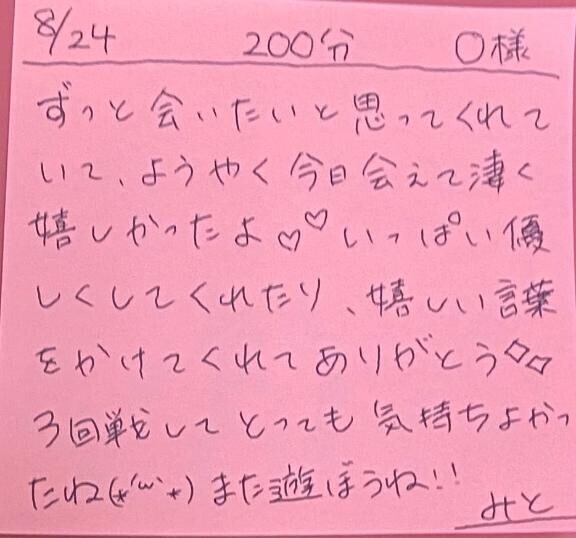 8/24 200分 〇様
ずっと会いたいと思ってくれて
いて、ようやく今日会えて凄く
嬉しかったよ♡♡いっぱい優
しくしてくれたり、嬉しい言葉
をかけてくれてありがとう◇◇
3回戦してとっても気持ちよかっ
たね(*´ω`*)また遊ぼうね!!
みと